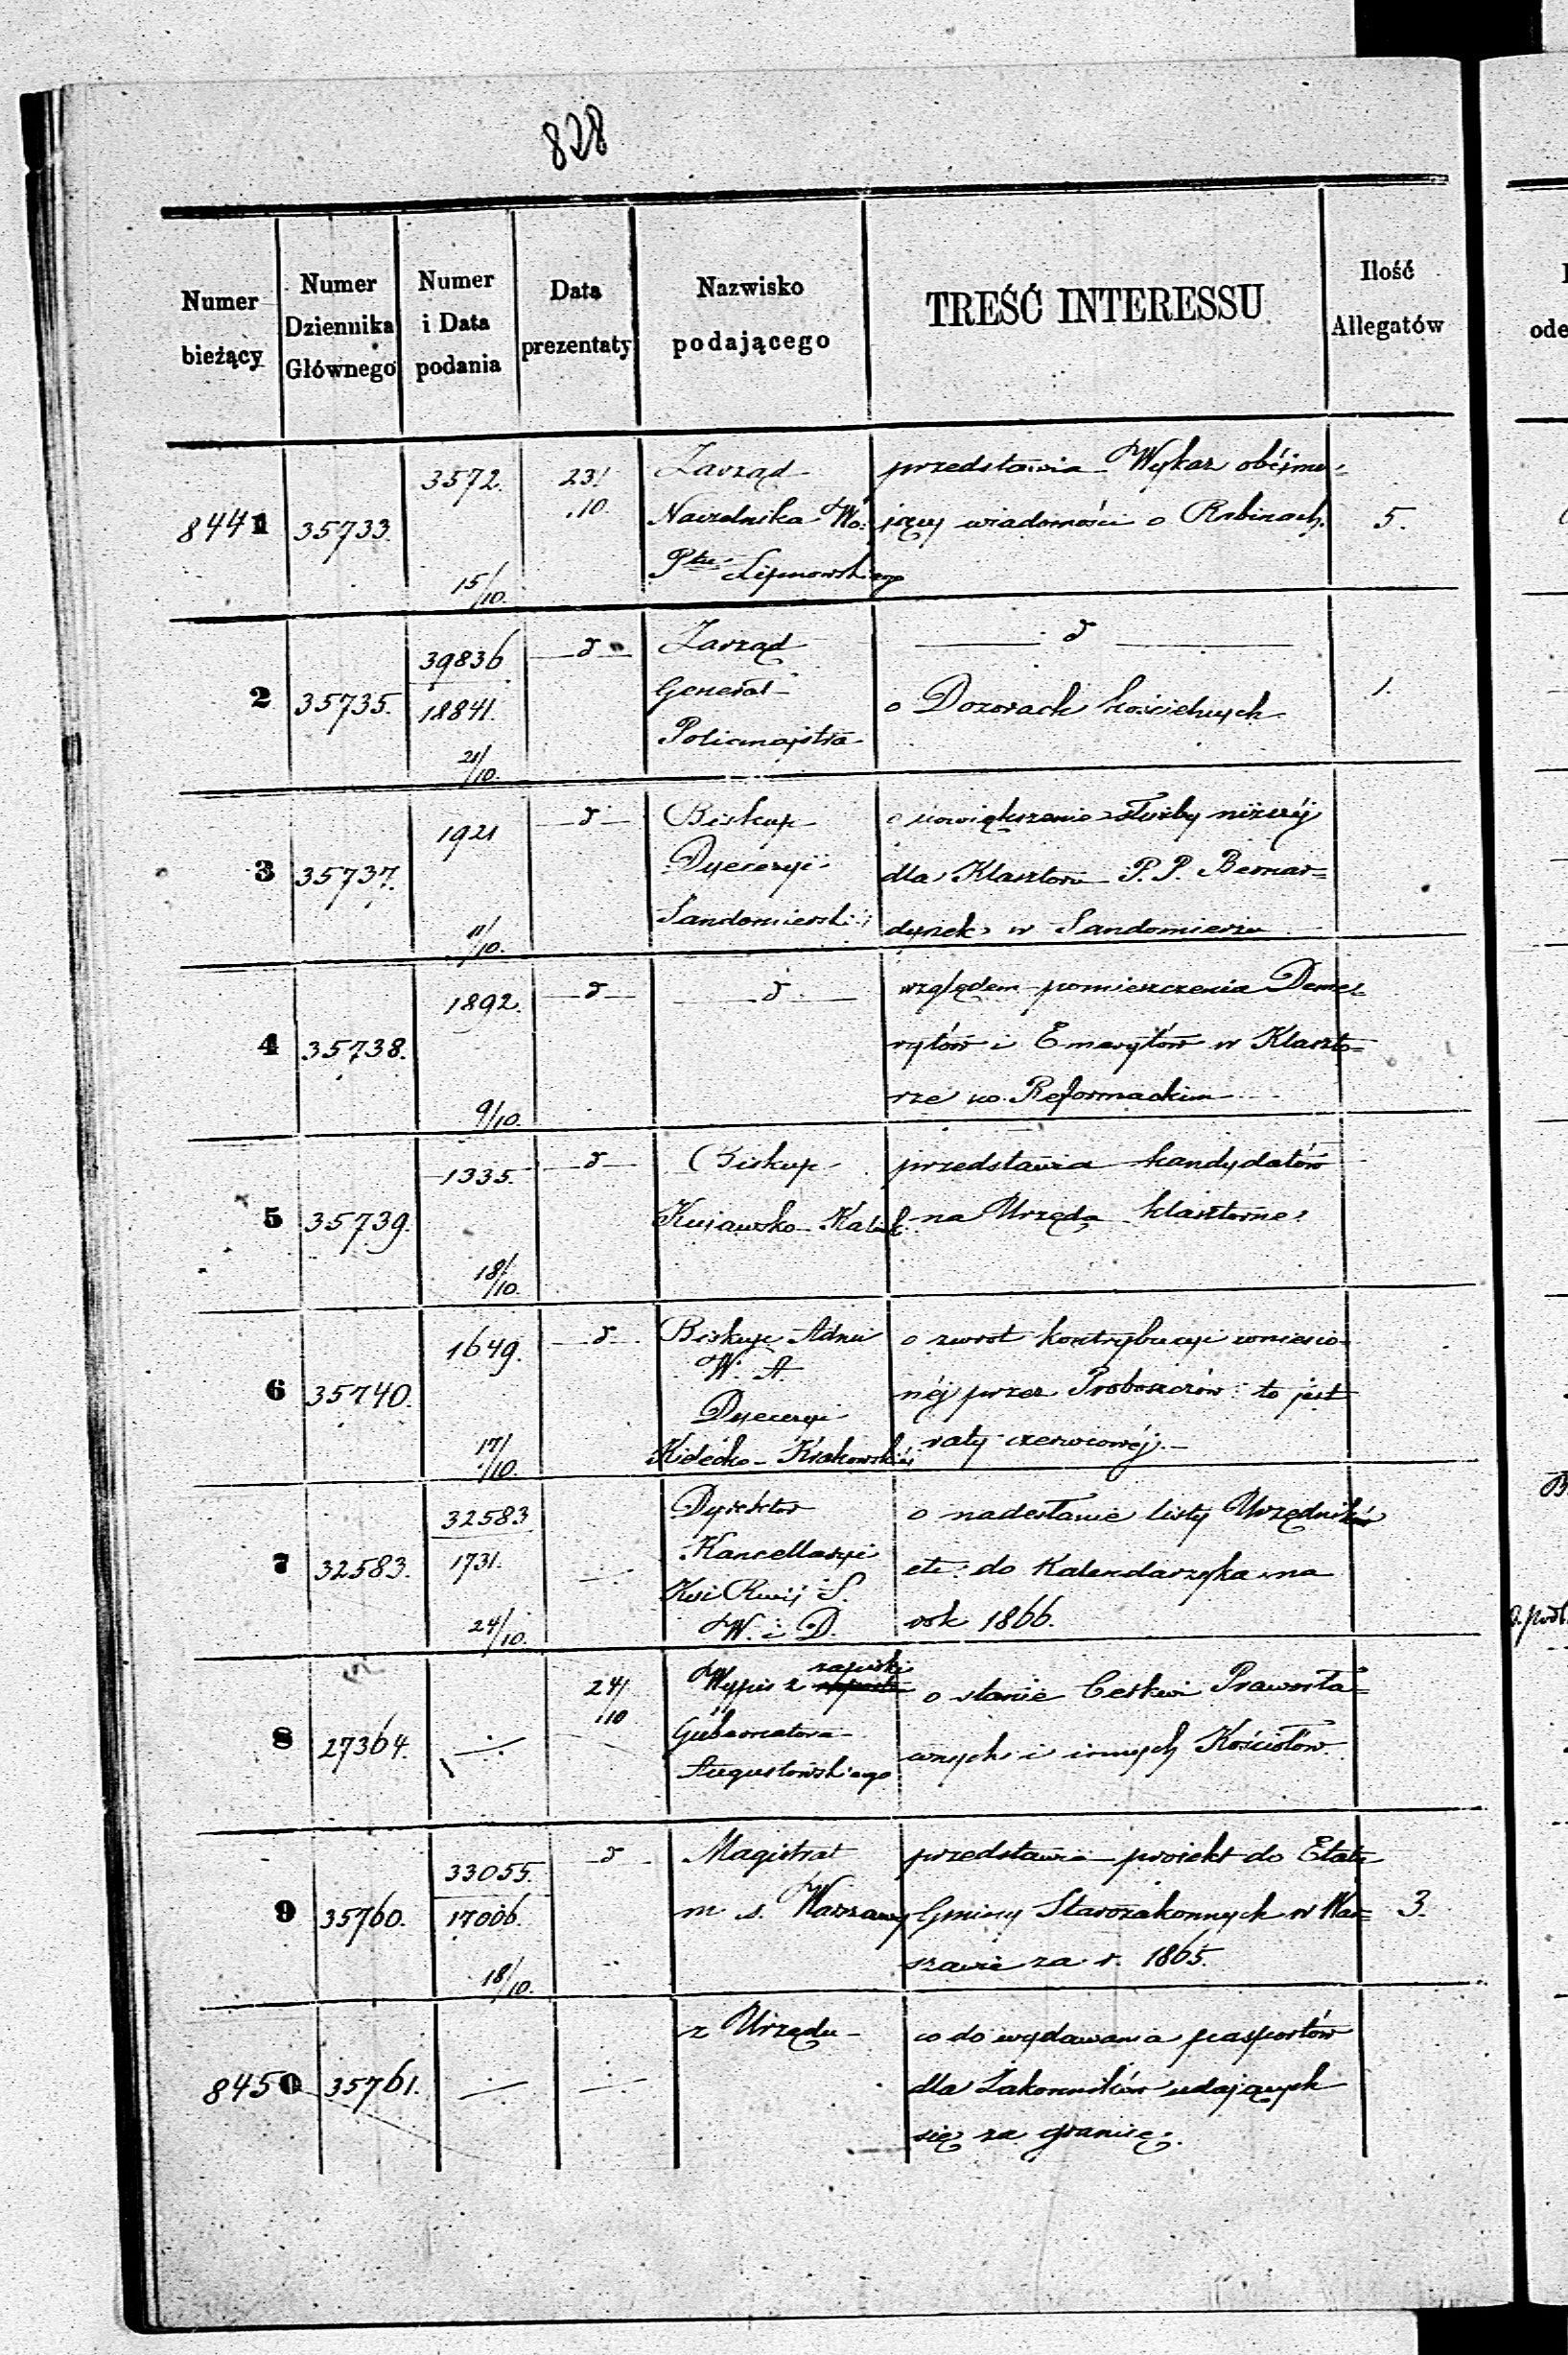 828
Numer bieżący
Numer Dziennika Głównego
Numer i Data podania
Data prezentaty
Nazwisko podającego
TREŚĆ INTERESSU
Ilość Allegatów
8441 35733. 3572. 15/10. 23/10
Zarząd
Naczelnika Wo.
Ptu Lipnowskiego
przedstawia Wykaz obéjmu-
jący wiadomości o Rabinach. 5.
2 35735. 39836 18841. 21/10. d
Zarząd
Generał
Policmajstra
d
o Dozorach kościelnych 1.
3 35737. 1921 11/10. d
Biskup
Dyecezyi
Sandomierski
o powiększenie służby niższéj
dla Klasztoru P. P. Bernar=
dynek w Sandomierzu
4 35738. 1892. 9/10. d
d
względem pomieszczenia Deme-
rytów i Emerytów w Klaszto=
rze Reformackim
5 35739. 1335. 18/10. d
Biskup
Kujawsko Kalisk.
przedstawia kandydatów
na Urzęda klasztorne
6 35740. 1649. 17/10. d
Biskup Admi
W. A.
Dyecezyi
Kielécko-Krakowskiéj
o zwrot kontrybucyi wniesio-
néj przez Proboszczów to jest
raty czerwcowéj.
7 32583. 32583 1731. 24/10.
Dyrektor
Kancellaryi
S.
W. i D.
o nadesłanie listy Urzędników
etc. do Kalendarzyka na
rok 1866.
8 27364. 24/10
Wypis z zapiski
Gubernatora
Augustowskiego
o stanie Cerkwi Prawosła=
wnych i innych Kościołów
9 35760. 33055. 17006. 18/10. d
Magistrat
m. s. Warszawy
przedstawia projekt do Etatu
Gminy Starozakonnych w War=
szawie za r. 1865. 3.
8450 35761.
z Urzędu
co do wydawania pasportów
dla Zakonników udających
się za granicę.